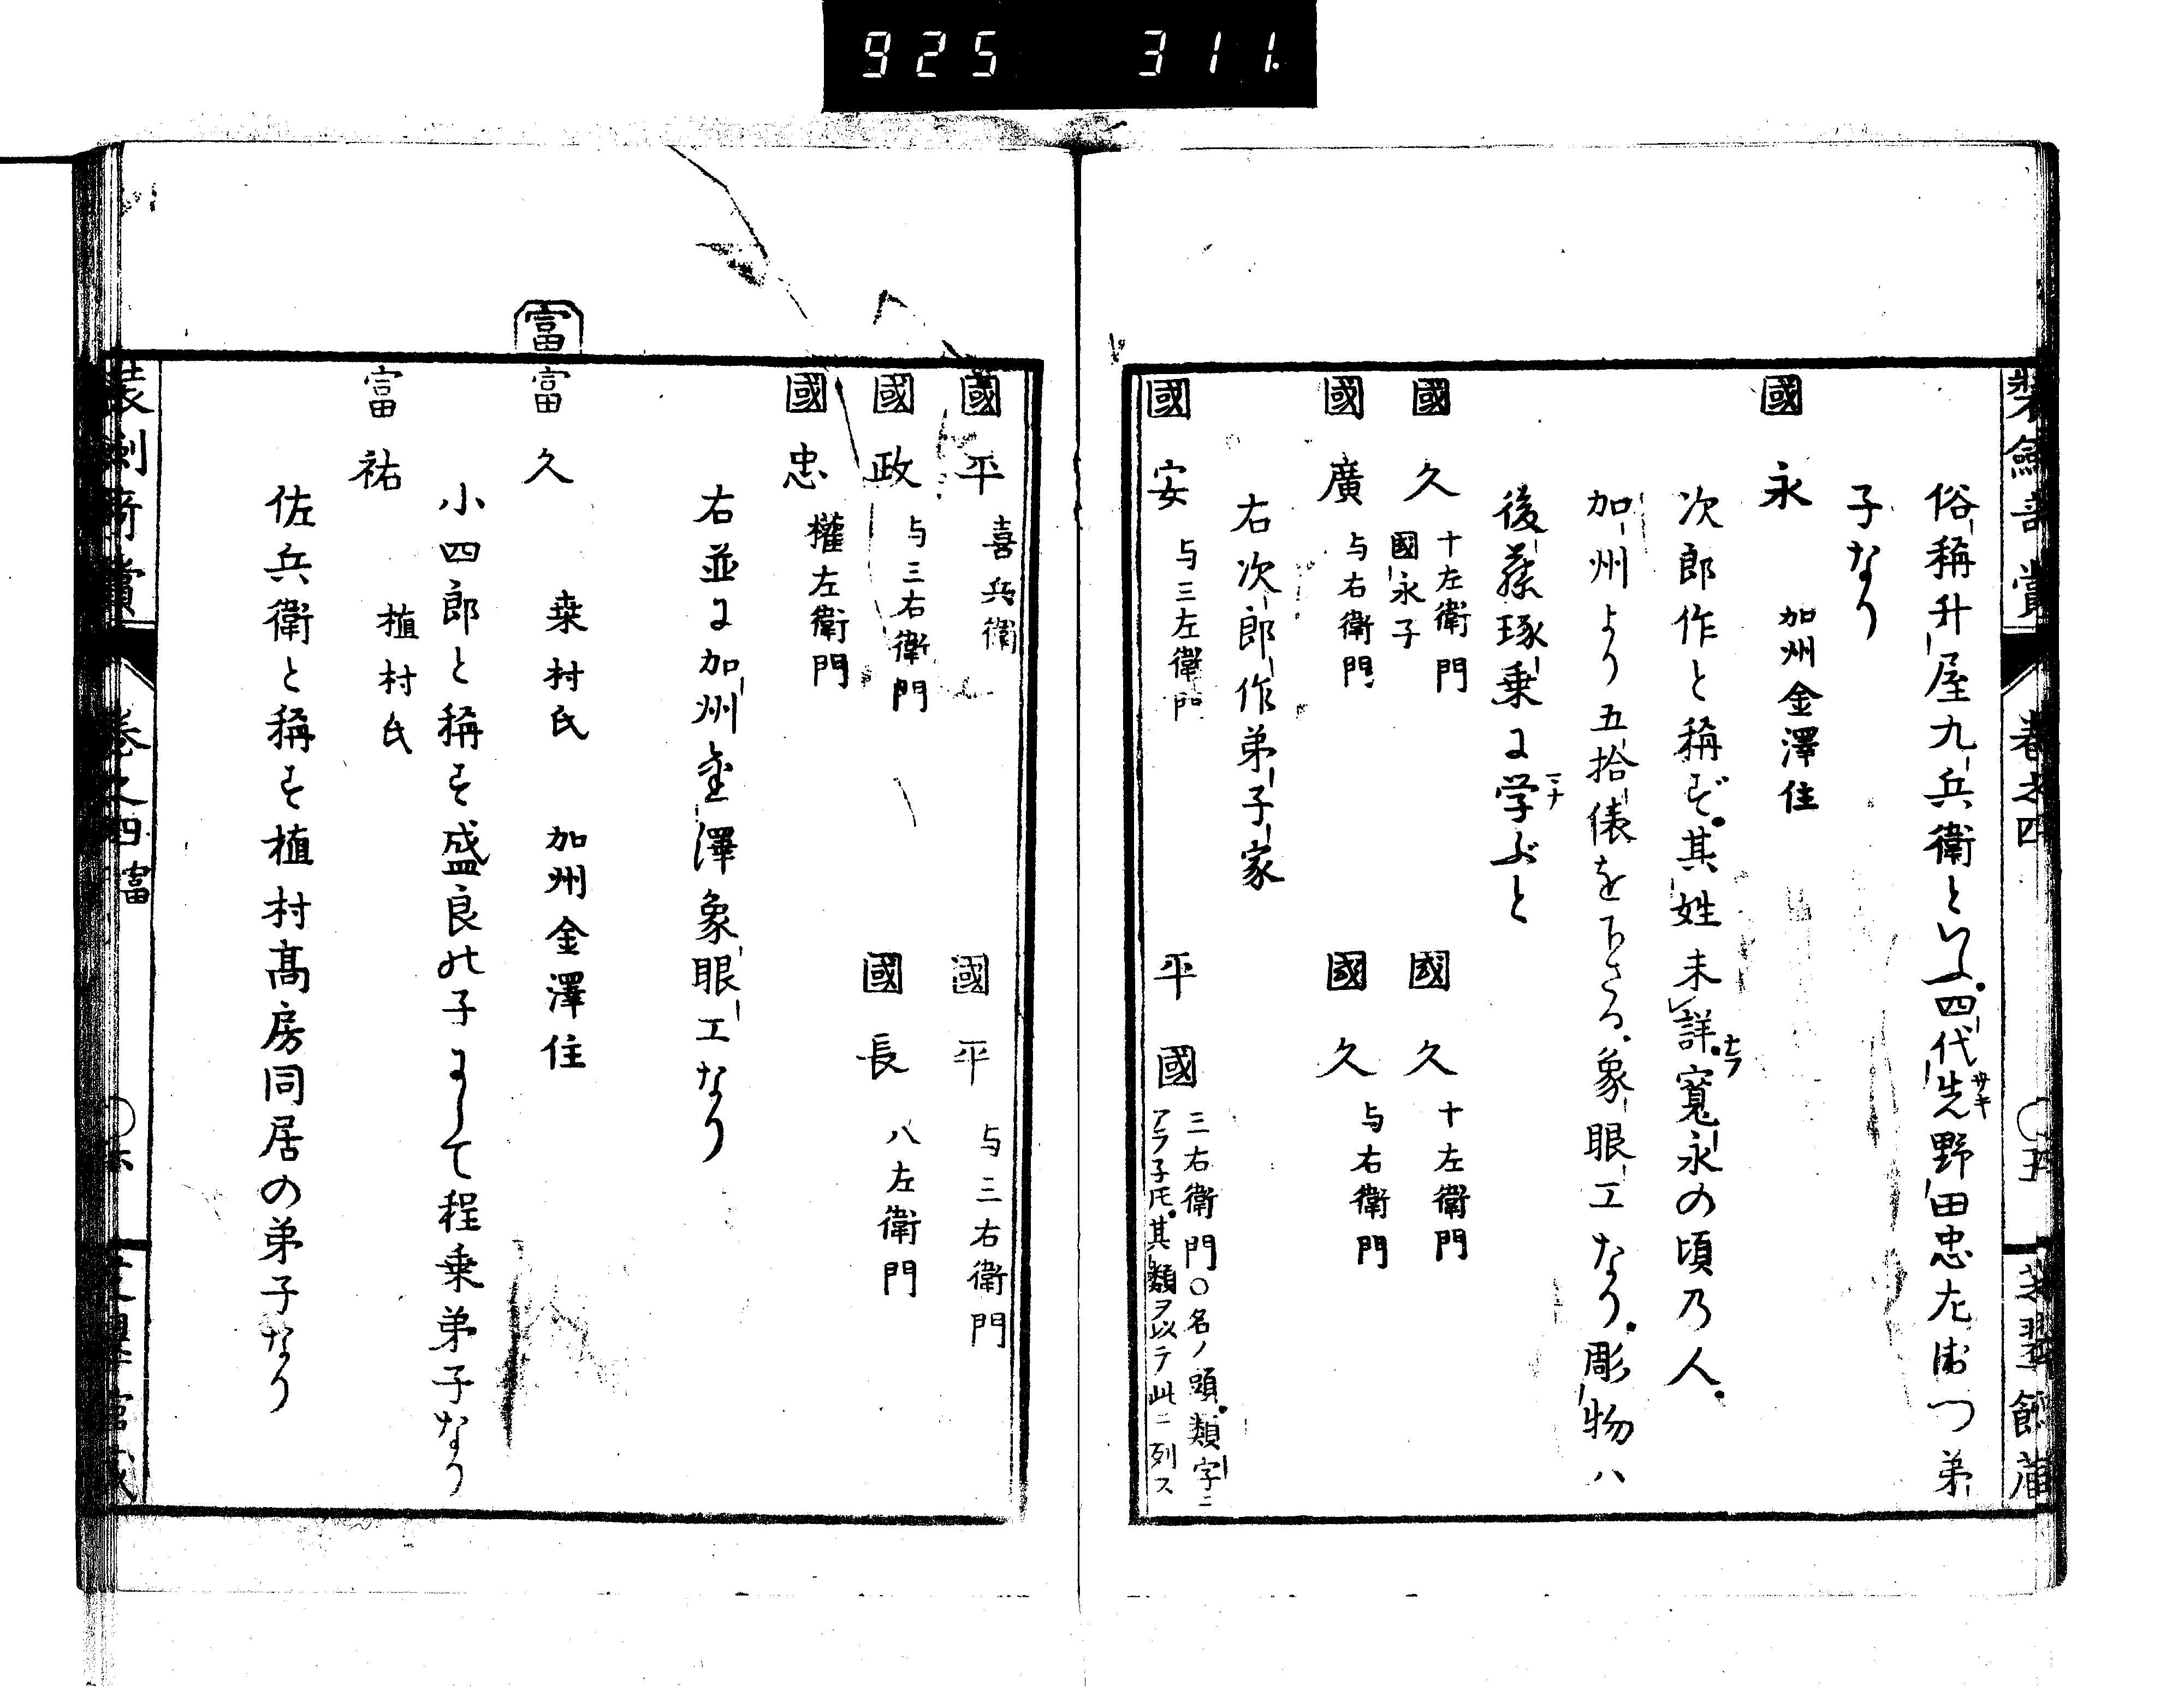 925 311.
装劔奇賞 卷之四 ○五 文翌館蔵
俗称升屋九兵衛といふ。四代先野田忠左衛つ弟
サキ
子なり
國永 加州金澤住
次郎作と稱ず。其姓未詳。寛永の頃乃人。
加州より五拾俵を下さる。象眼工なり。彫物ハ
後藤琢乗に学ぶと
國久 十左衛門 國永子 國久 十左衛門
國廣 与右衛門 國久 与右衛門
右次郎作弟子家
國安 与三左衛門 平國 三右衛門○名ノ頭。類字ニ
アラ子𪜈。其類ヲ以テ此ニ列ス
國平 喜兵衛 國平 与三右衛門
國政 与三右衛門 國長 八左衛門
國忠 權左衛門
右並に加州金澤象眼工なり
富
富久 桒村氏 加州金澤住
小四郎と稱す盛良の子にして程乗弟子なり
富祐 植村氏
佐兵衛と稱す植村髙房同居の弟子なり
装劔奇賞 卷之四 富